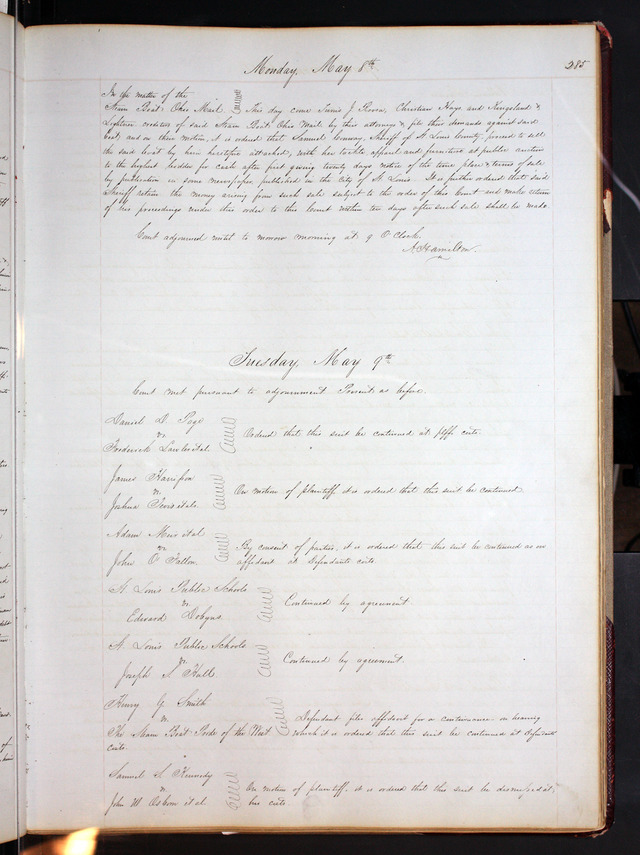 285
Monday, May 8th
In the matter of the
Steam Boat Ohio Mail This day come Junis J Roosa, Christian Hays and Kingsland &
Lightner creditors of said Steam Boat Ohio Mail by their attorney & file their demands against said
boat, and on their motion, it is ordered that Samuel Conway, Sheriff of St Louis County, proceed to sell
the said boat by him heretofore attached, with her tackle, apparel and furniture at public auction
to the highest bidder for cash after first giving twenty days notice of the time place & terms of sale
by publication in some newspaper published in the City of St Louis. It is further ordered that said
Sheriff retain the money arising from such sale subject to the order of this Court and make return
of his proceedings under this order to this Court within ten days after such sale shall be made.
Court adjourned until to morrow morning at 9 O'Clock.
A Hamilton
Tuesday, May 9th
Court met pursuant to adjournment Present as before.
Daniel D. Page
vs
Frederick et al. Ordered that this suit be continued at plffs costs.
James Harrison
vs
Joshua et als On motion of plaintiff it is ordered that this suit be continued.
Adam Muir et al
vs
John O'Fallon By consent of parties, it is ordered that this suit be continued as on
affidavit at Defendants costs.
St Louis Public Schools
vs
Edward Dobyns Continued by agreement.
St Louis Public Schools
vs
Joseph S Hull Continued by agreement.
Henry G Smith
vs Defendant files affidavit for a continuance on hearing
The Steam Boat Pride of the West which it is ordered that this suit be continued at defendants
costs.
Samuel S Kennedy
vs On motion of plaintiff, it is ordered that this suit be dismissed at
John W Osborn et al his costs.